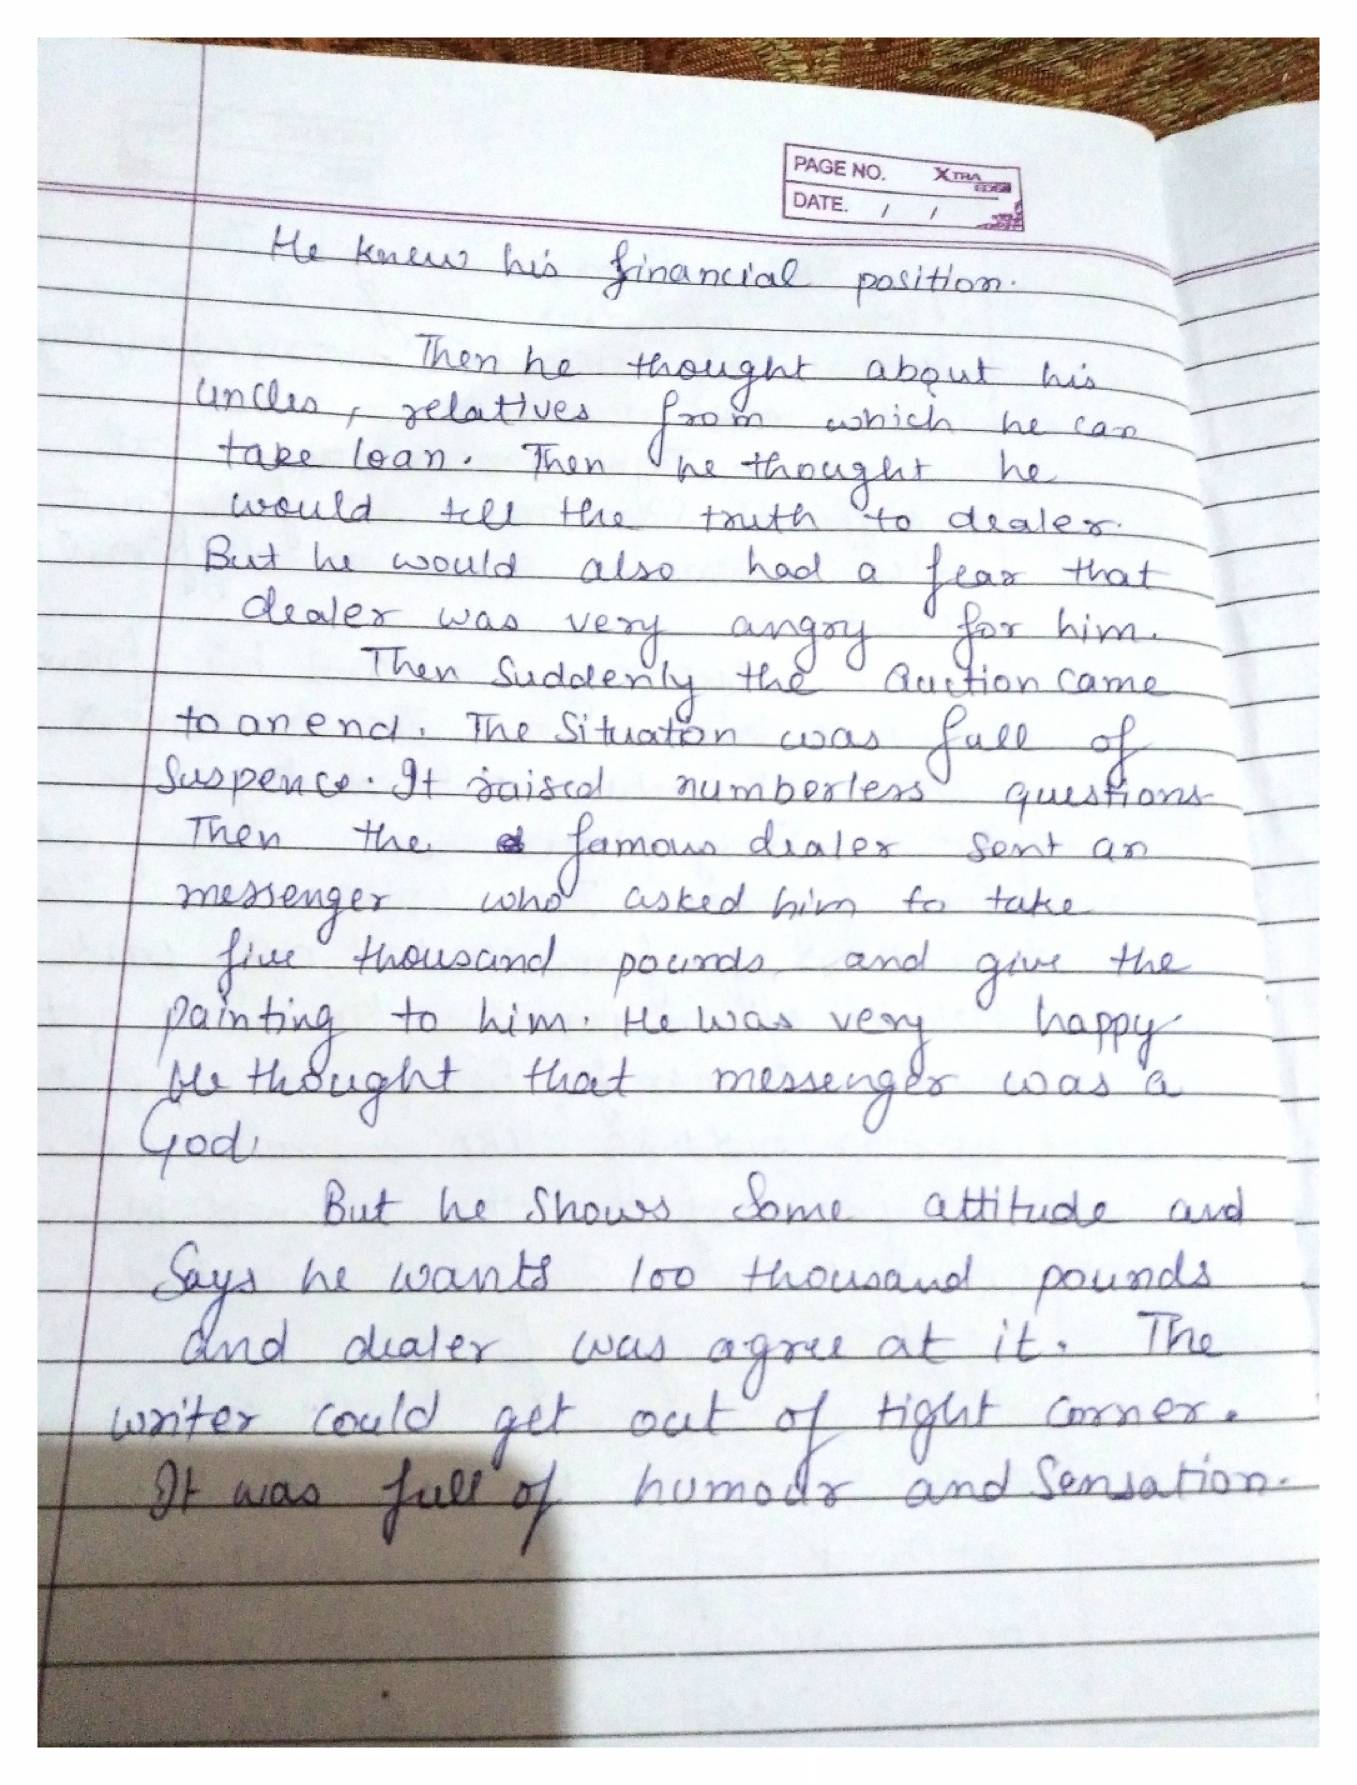 PAGE NO. XTRA
DATE. / /
He knew his financial position.
Then he thought about his
uncles, relatives from which he can
take loan. Then he thought he
would tell the truth to dealer.
But he would also had a fear that
dealer was very angry for him.
Then Suddenly the Auction came
to an end. The Situaton was full of
Suspence. It raised numberless questions
Then the famous dealer sent an
messenger who asked him to take
five thousand pounds and give the
painting to him. He was very happy
He thought that messenger was a
God.
But he Shows Some attitude and
Says he wants 100 thousand pounds
and dealer was agree at it. The
writer could get out of tight corner.
It was full of humour and Sensation.